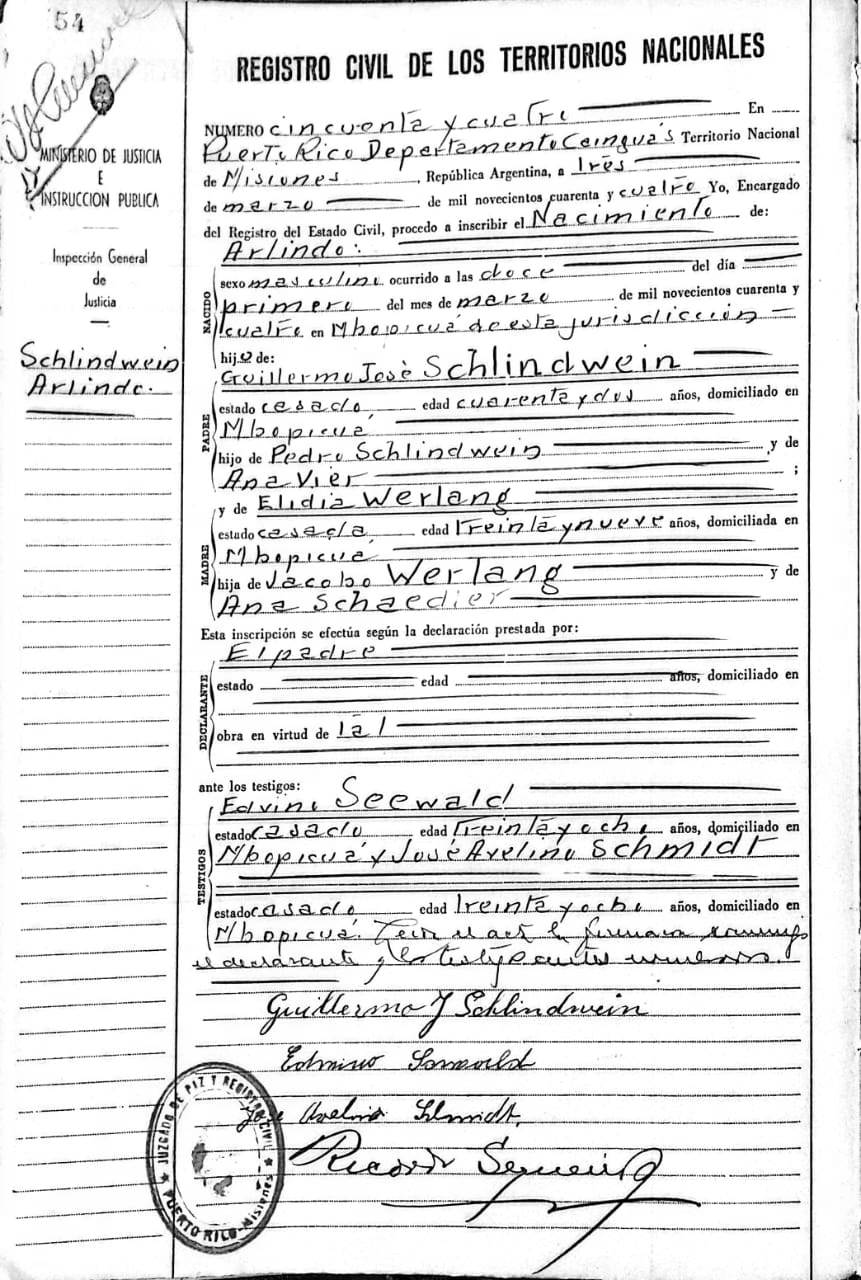 54
REGISTRO CIVIL DE LOS TERRITORIOS NACIONALES
MINISTERIO DE JUSTICIA
E
INSTRUCCION PUBLICA
Inspección General
de
Justicia
Schlindwein
Arlindo.
NUMERO cincuenta y cuatro En
Puerto Rico Departamento Caingua's Territorio Nacional
de Misiones, República Argentina, a Tres
de marzo de mil novecientos cuarenta y cuatro Yo, Encargado
del Registro del Estado Civil, procedo a inscribir el Nacimiento de:
Arlindo:
NACIDO
sexo masculino ocurrido a las doce del día
primero del mes de marzo de mil novecientos cuarenta y
cuatro en Mbopicuá de esta jurisdicción
hijo de:
Guillermo José Schlindwein
PADRE
estado casado edad cuarenta y dos años, domiciliado en
Mbopicuá
hijo de Pedro Schlindwein y de
Ana Vier ;
y de Elidia Werlang
MADRE
estado casada edad treinta y nueve años, domiciliada en
Mbopicuá
hija de Jacobo Werlang y de
Ana Schaedier
Esta inscripción se efectúa según la declaración prestada por:
El padre
DECLARANTE
estado edad años, domiciliado en
obra en virtud de tal
ante los testigos:
Edvino Seewald
TESTIGOS
estado casado edad treinta y ocho años, domiciliado en
Mbopicuá y José Avelino Schmidt
estado casado edad treinta y ocho años, domiciliado en
Mbopicuá. el acta la
el declarante y los testigos
Guillermo J Schlindwein
José Avelino Schmidt.
Ricardo
JUZGADO DE PAZ Y REGISTRO CIVIL
PUERTO RICO - Misiones